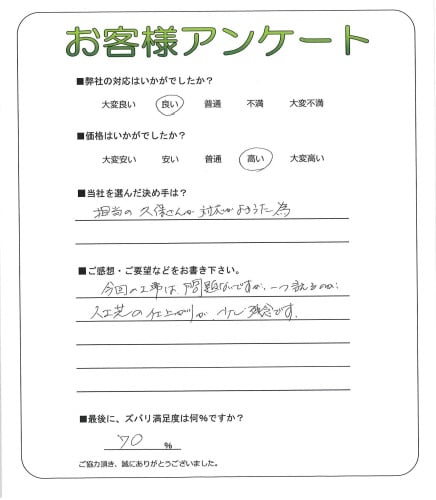 お客様アンケート
■弊社の対応はいかがでしたか？
大変良い 良い 普通 不満 大変不満
■価格はいかがでしたか？
大変安い 安い 普通 高い 大変高い
■当社を選んだ決め手は？
担当の久保さんが対応がよかった為
■ご感想・ご要望などをお書き下さい。
今回の工事は、問題ないですが、一つ言えるのは、
人工芝の仕上がりが、少し残念です。
■最後に、ズバリ満足度は何％ですか？
70 %
ご協力頂き、誠にありがとうございました。